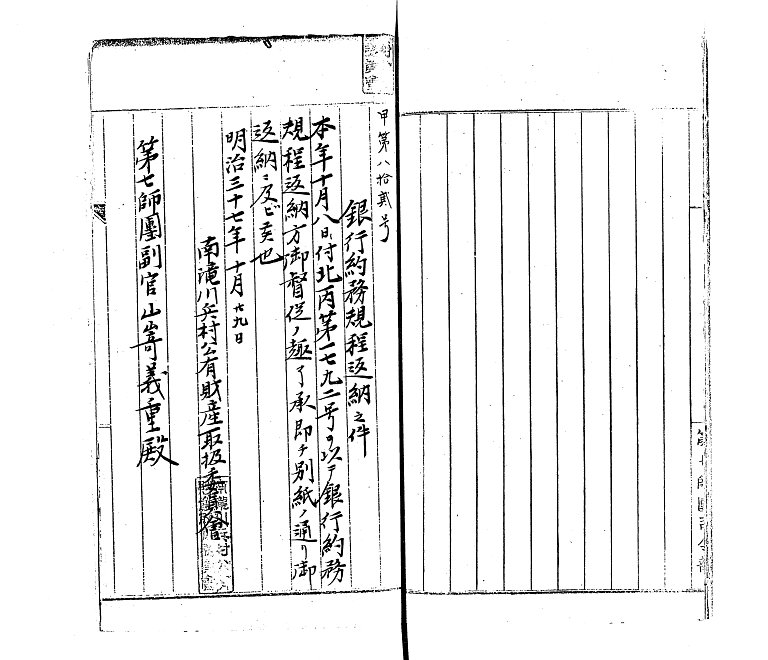 甲第八拾貳号
銀行約務規程返納之件
本年十月八日付北丙第一七九二号ヲ以テ銀行約務
規程返納方御督促ノ趣了承即チ別紙ノ通リ御
返納ニ及ビ候也
明治三十七年十月廿九日
南滝川兵村公有財産取扱委員
第七師團副官山嵜義重殿
第七師團司令部